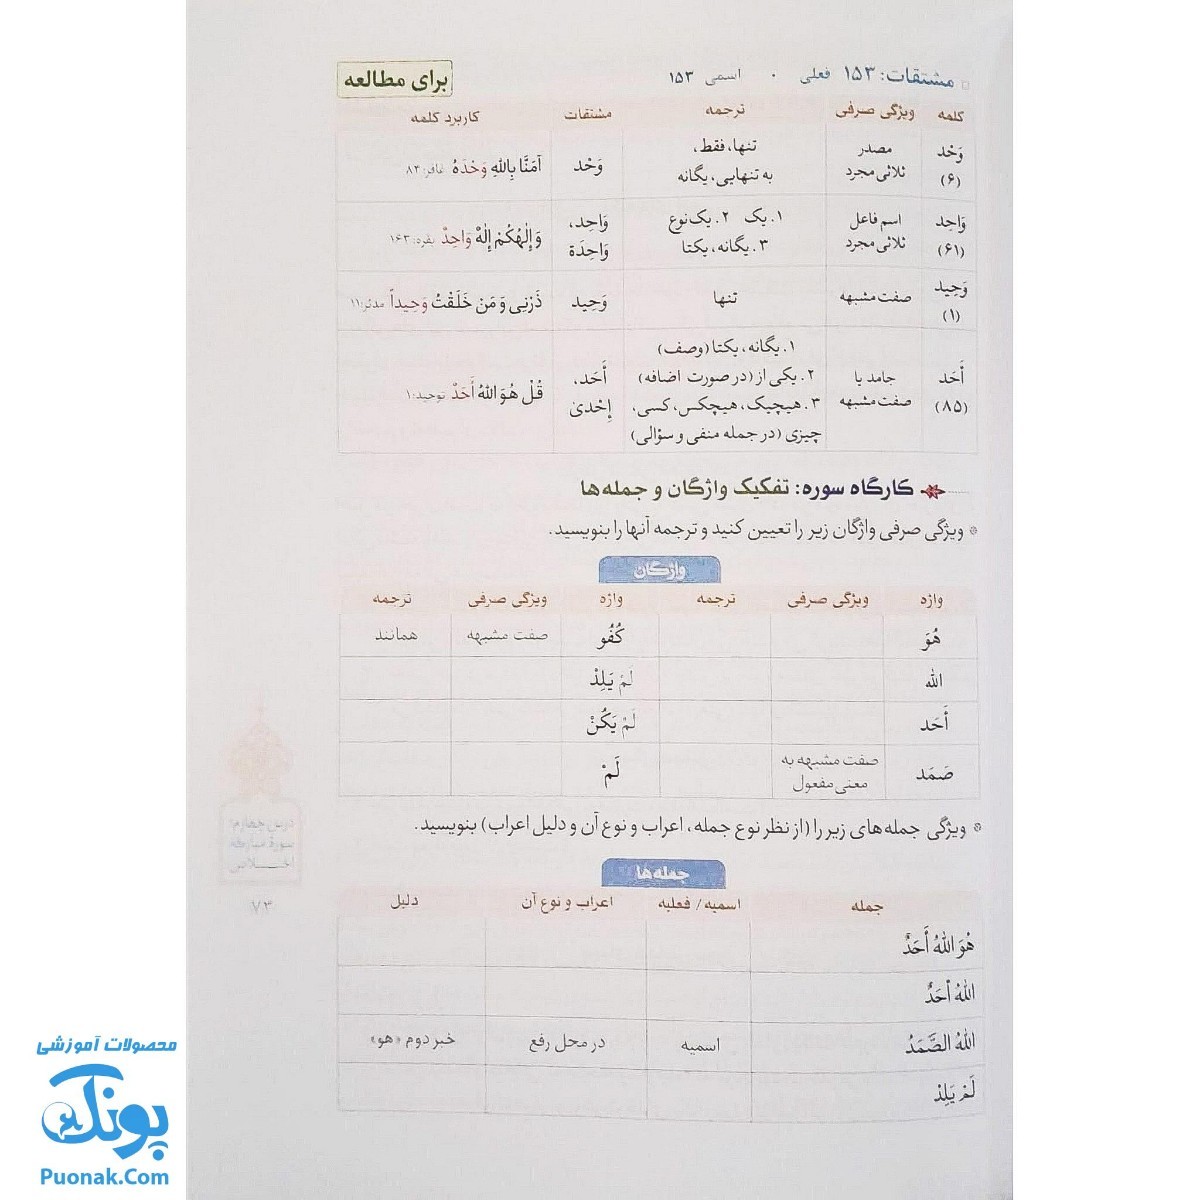 مشتقات: ۱۵۳ فعلی ۰ اسمی ۱۵۳
برای مطالعه
کلمه ویژگی صرفی ترجمه مشتقات کاربرد کلمه
وَحْد (۶) مصدر ثلاثی مجرد تنها، فقط، به تنهایی، یگانه وَحْد آمَنَّا بِاللهِ وَحْدَهُ غافر: ۸۴
وَاحِد (۶۱) اسم فاعل ثلاثی مجرد ۱. یک ۲. یک نوع ۳. یگانه، یکتا وَاحِد، وَاحِدَة وَ إِلٰهُكُمْ إِلٰهٌ وَاحِدٌ بقره: ۱۶۳
وَحِيد (۱) صفت مشبهه تنها وَحِيد ذَرْنِی وَ مَنْ خَلَقْتُ وَحِيداً مدثر: ۱۱
أَحَد (۸۵) جامد یا صفت مشبهه ۱. یگانه، یکتا (وصف)
۲. یکی از (در صورت اضافه)
۳. هیچیک، هیچکس، کسی،
چیزی (در جمله منفی و سؤالی)
أَحَد، إِحْدىٰ قُلْ هُوَ اللهُ أَحَدٌ توحید: ۱
کارگاه سوره: تفکیک واژگان و جمله‌ها
ویژگی صرفی واژگان زیر را تعیین کنید و ترجمه آنها را بنویسید.
واژگان
واژه ویژگی صرفی ترجمه واژه ویژگی صرفی ترجمه
هُوَ کُفُو صفت مشبهه همانند
الله لَمْ يَلِدْ
أَحَد لَمْ يَكُنْ
صَمَد صفت مشبهه به معنی مفعول لَمْ
ویژگی جمله‌های زیر را (از نظر نوع جمله، اعراب و نوع آن و دلیل اعراب) بنویسید.
جمله‌ها
جمله اسمیه / فعلیه اعراب و نوع آن دلیل
هُوَ اللهُ أَحَدٌ
اللهُ أَحَدٌ
اللهُ الصَّمَدُ اسمیه در محل رفع خبر دوم «هو»
لَمْ يَلِدْ
درس چهارم:
سورهٔ مبارکه
اخلاص
۷۳
محصولات آموزشی
پونک
Puonak.Com